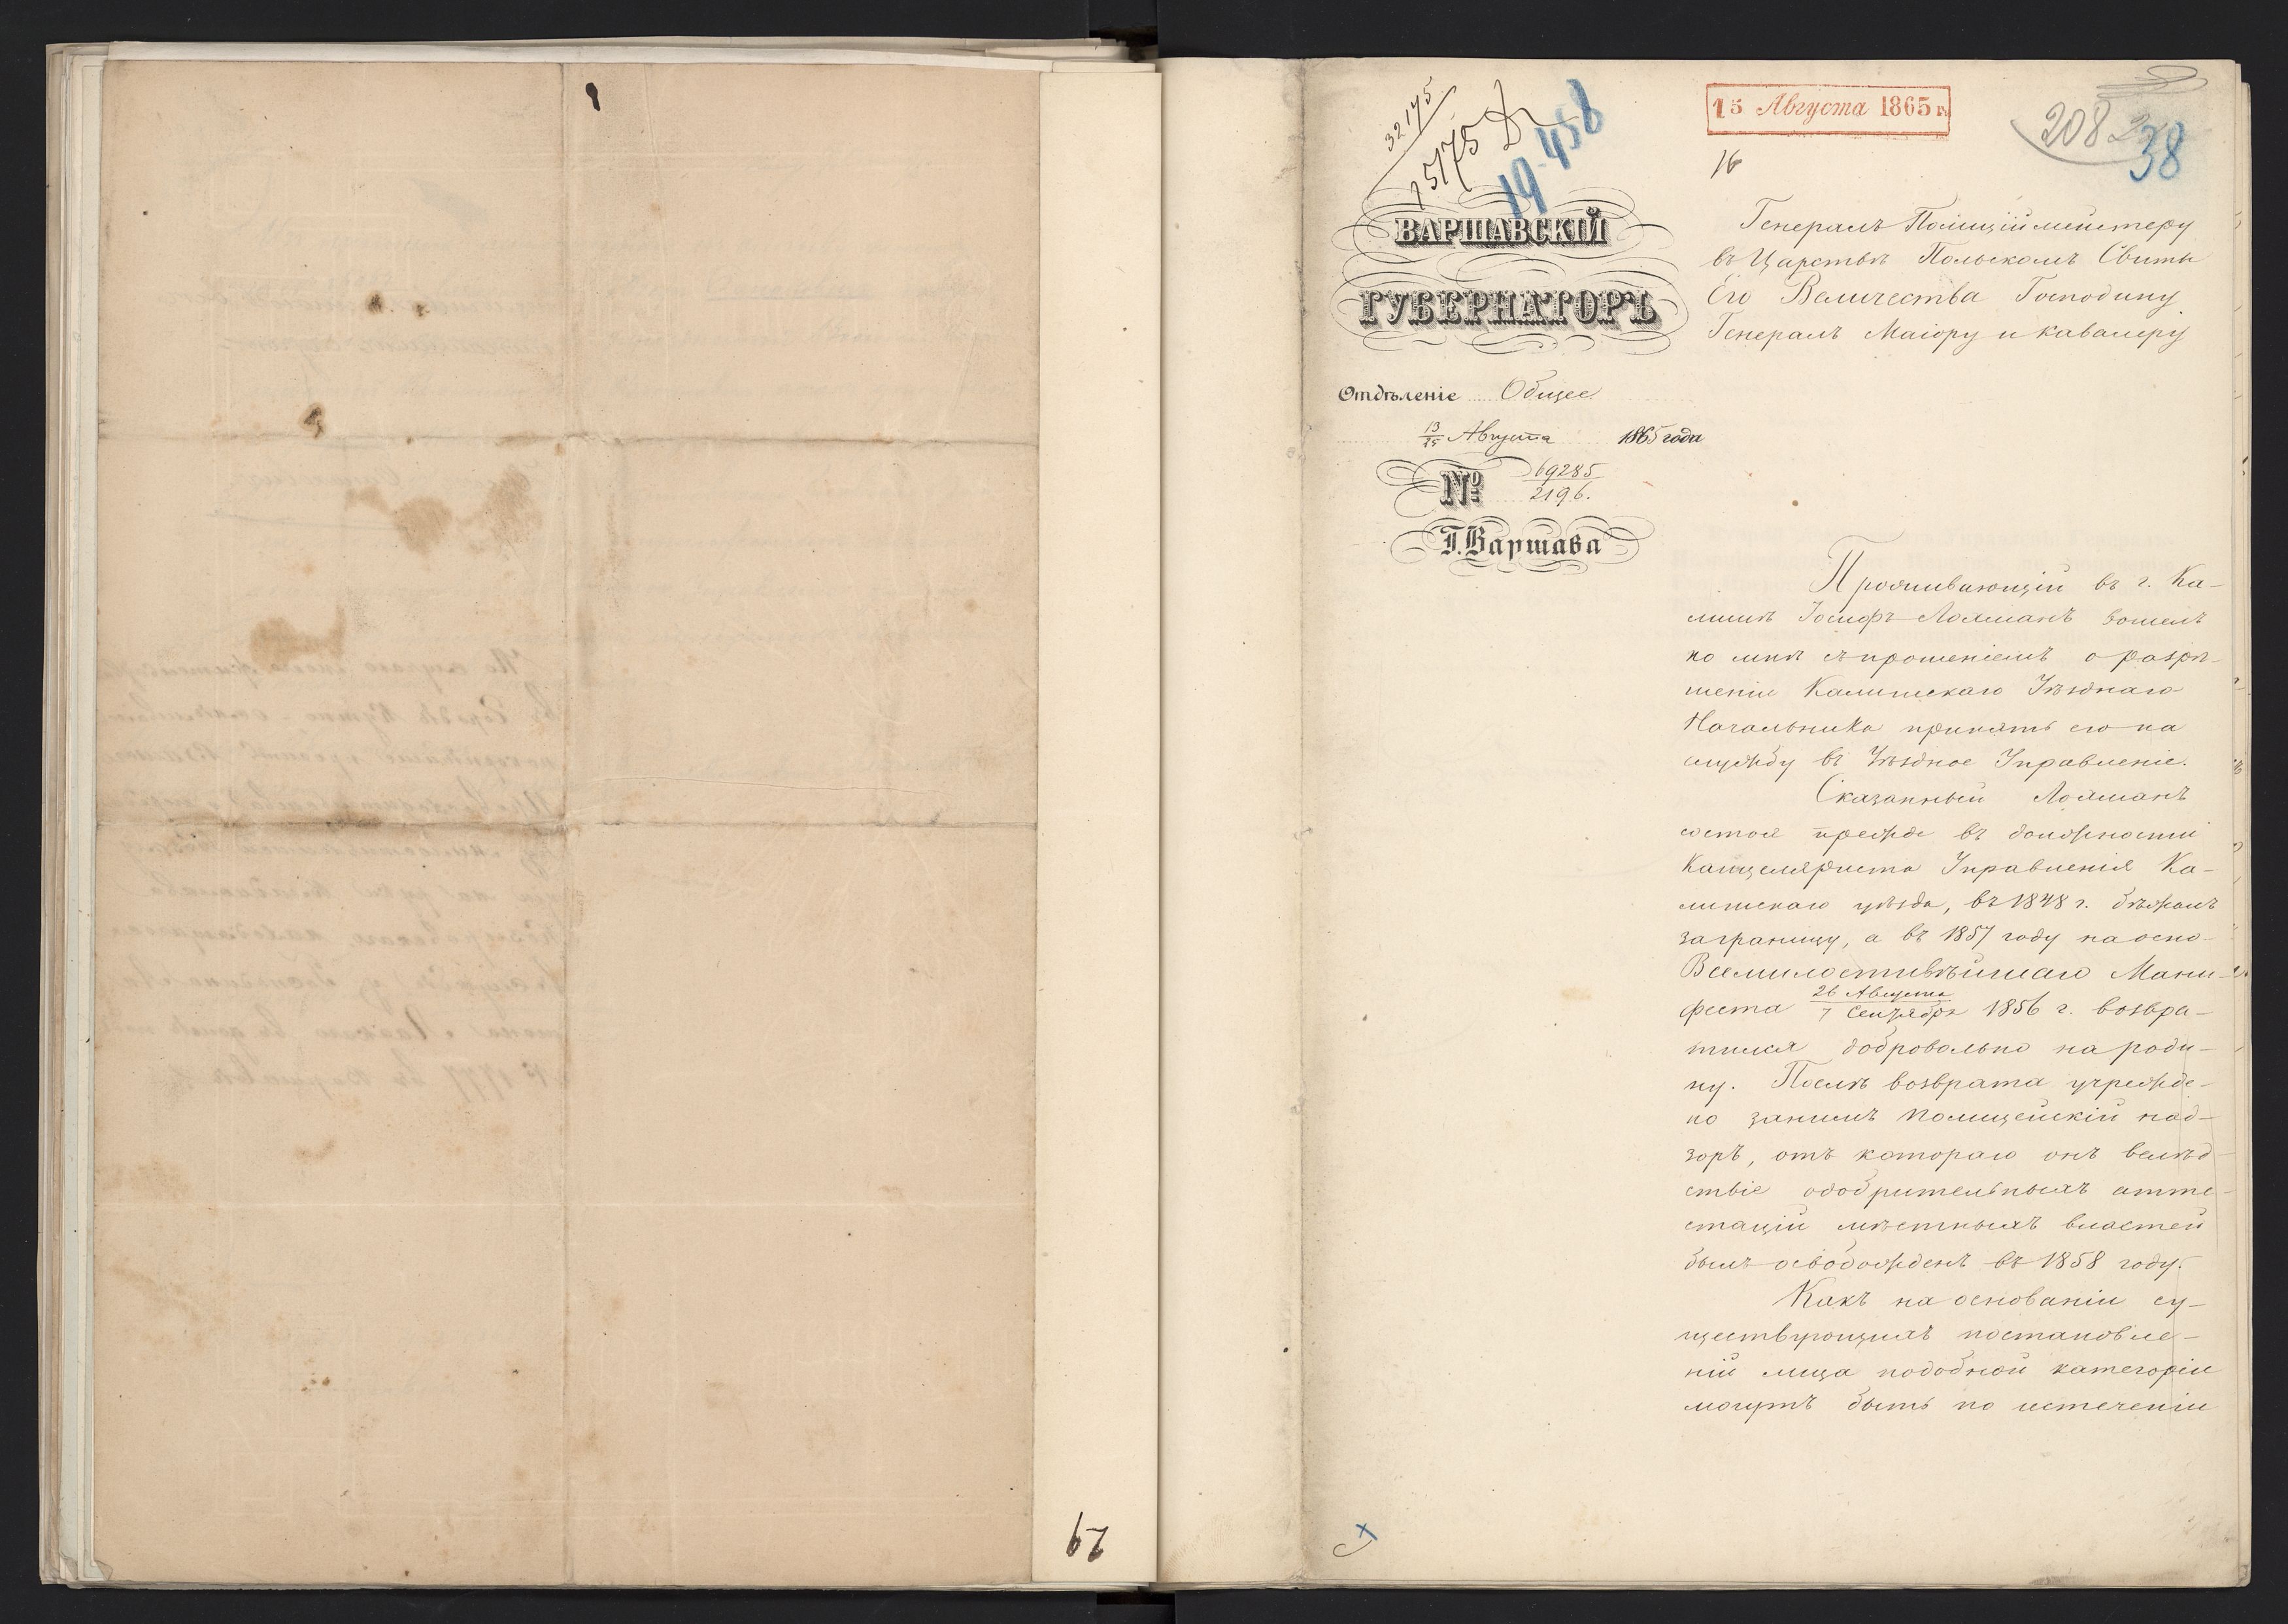 32145
15175
19-456
15 Августа 1865 г.
16
208
38
ВАРШАВСКІЙ
ГУБЕРНАТОРЪ
Отдѣленіе Общее
13/25 Августа 1865 года
№ 69285/2196.
Г. Варшава
Генералъ Полиціймейстеру
въ Царствѣ Польскомъ Свиты
Его Величества Господину
Генералъ Маіору и Кавалеру
Проживающій въ г. Ка-
лишѣ Іосифъ Лояманъ вошелъ
ко мнѣ съ прошеніемъ о разрѣ-
шеніи Калишскаго Уѣзднаго
Начальника принять его на
службу въ Уѣздное Управленіе.
Сказанный Лояманъ
состоя прежде въ должности
Канцеляриста Управленія Ка-
лишскаго уѣзда, въ 1848 г. бѣжалъ
заграницу, а въ 1857 году на осно-
Всемилостивѣйшаго Мани-
феста 26 Августа/7 Сентября 1856 г. возвра-
тился добровольно на роди-
ну. Послѣ возврата учрежде-
но занимъ полицейскій над-
зоръ, отъ котораго онъ вслѣд-
ствіе одобрительныхъ атте-
стацій мѣстныхъ властей
былъ освобожденъ въ 1858 году.
Какъ на основаніи су-
ществующихъ постановле-
ній лица подобной категоріи
могутъ быть по истеченіи
67